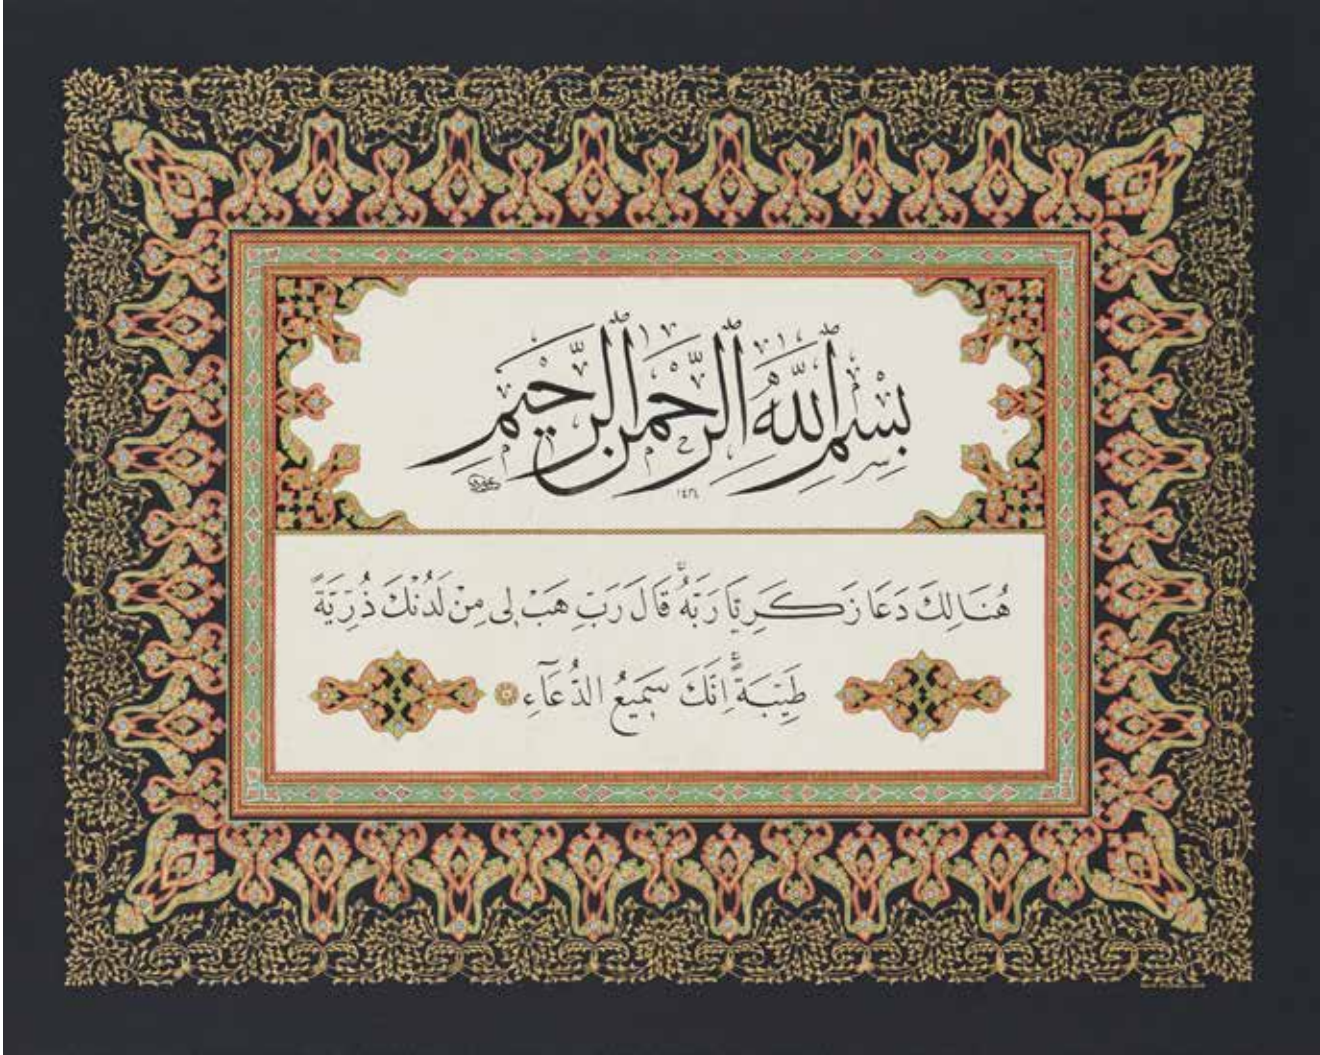 بِسْمِ اللّٰهِ الرَّحْمٰنِ الرَّحِيْمِ
١٤٣٤
هُنَالِكَ دَعَا زَكَرِيَّا رَبَّهُ ۚ قَالَ رَبِّ هَبْ لِى مِنْ لَدُنْكَ ذُرِّيَّةً
طَيِّبَةً ۚ اِنَّكَ سَمِيعُ الدُّعَٓاءِ